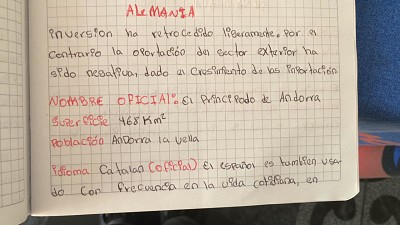 ALEMANIA
inversion ha retrocedido ligeramente. Por el
contrario la aportación del sector exterior ha
sido negativa, dado el Crecimiento de las importación
NOMBRE OFICIAL: El Principado de Andorra
Superficie 468 Km²
Población Andorra la vella
idioma Catalan (oficial) El español es tambien usa-
do Con frecuencia en la vida cotidiana, en